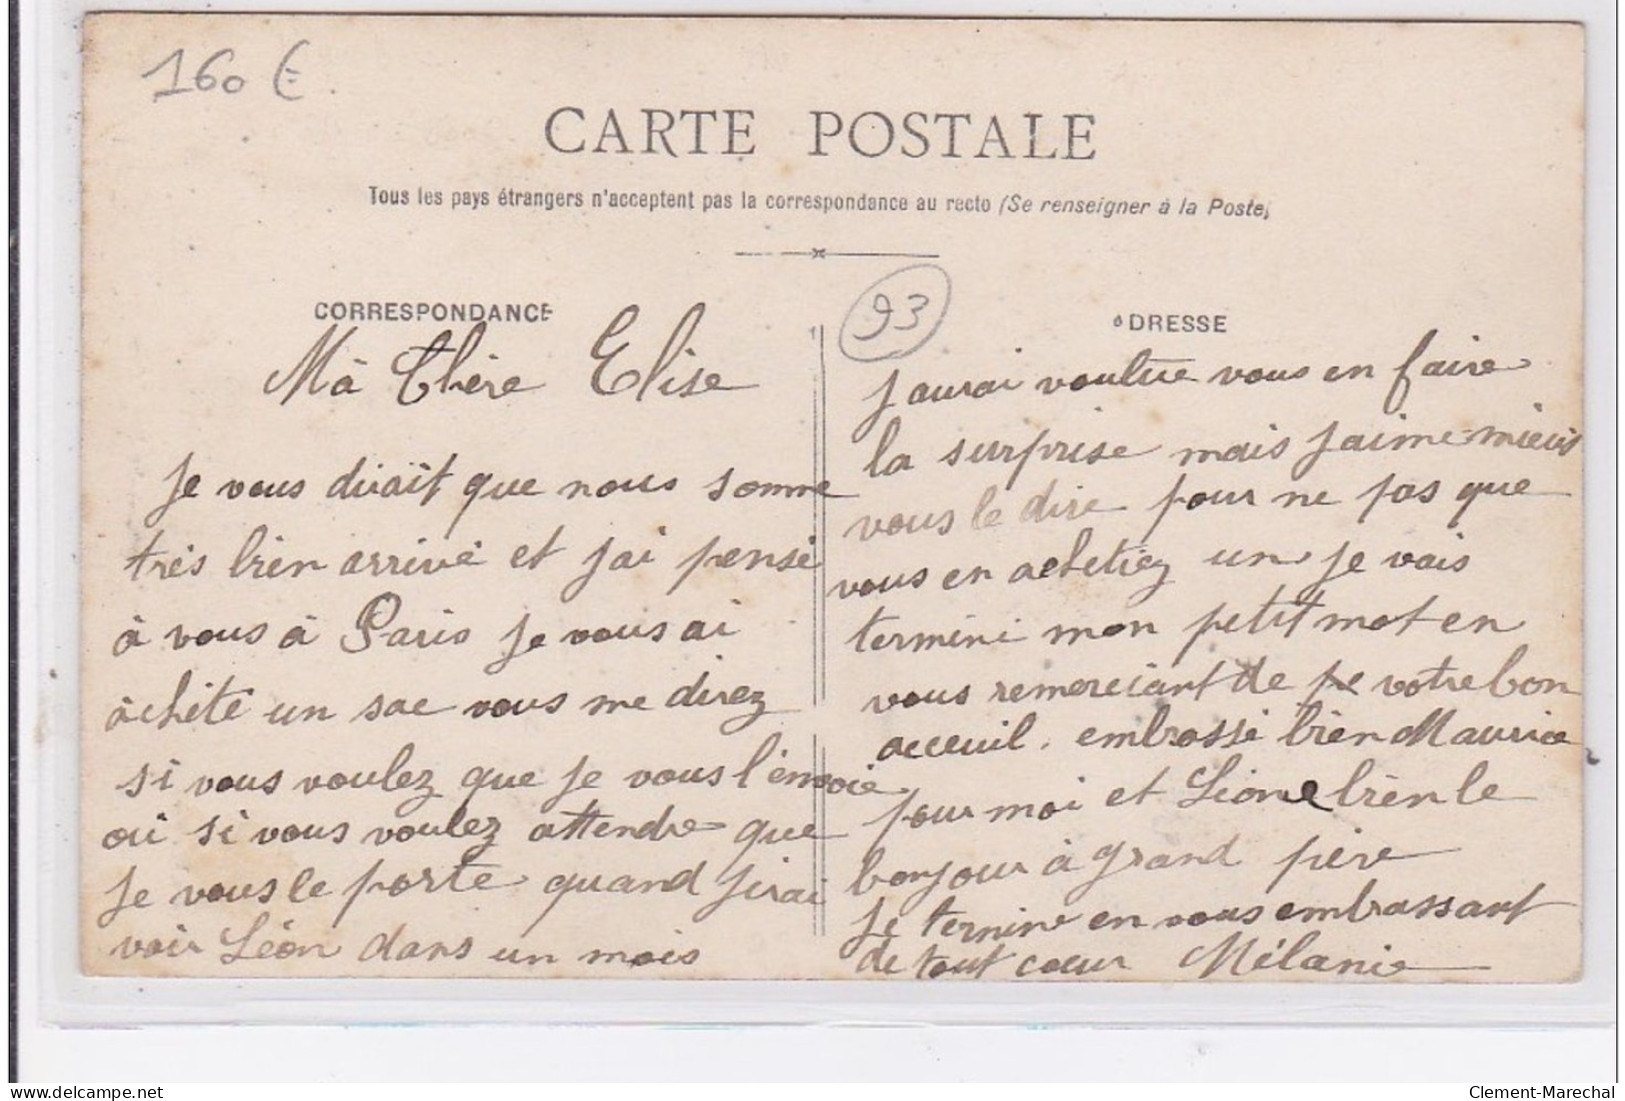 160 €
CARTE POSTALE
Tous les pays étrangers n'acceptent pas la correspondance au recto (Se renseigner à la Poste)
CORRESPONDANCE
Mà Chère Elise
Je vous dirait que nous somme
très bien arrivé et jai pensé
à vous à Paris Je vous ai
àcheté un sac vous me direz
si vous voulez que Je vous l'envoie
où si vous voulez attendre que
Je vous le porte quand Jirai
voir Léon dans un mois
93
ADRESSE
Jaurai voulue vous en faire
la surprise mais Jaime mieux
vous le dire pour ne pas que
vous en achetiez un Je vais
terminé mon petit mot en
vous remerciant de votre bon
acceuil. embrassé bien Maurice
pour moi et Lione bien le
bonjour à grand père
Je termine en vous embrassant
de tout cœur Mélanie
delcampe.net
Clement-Marechal